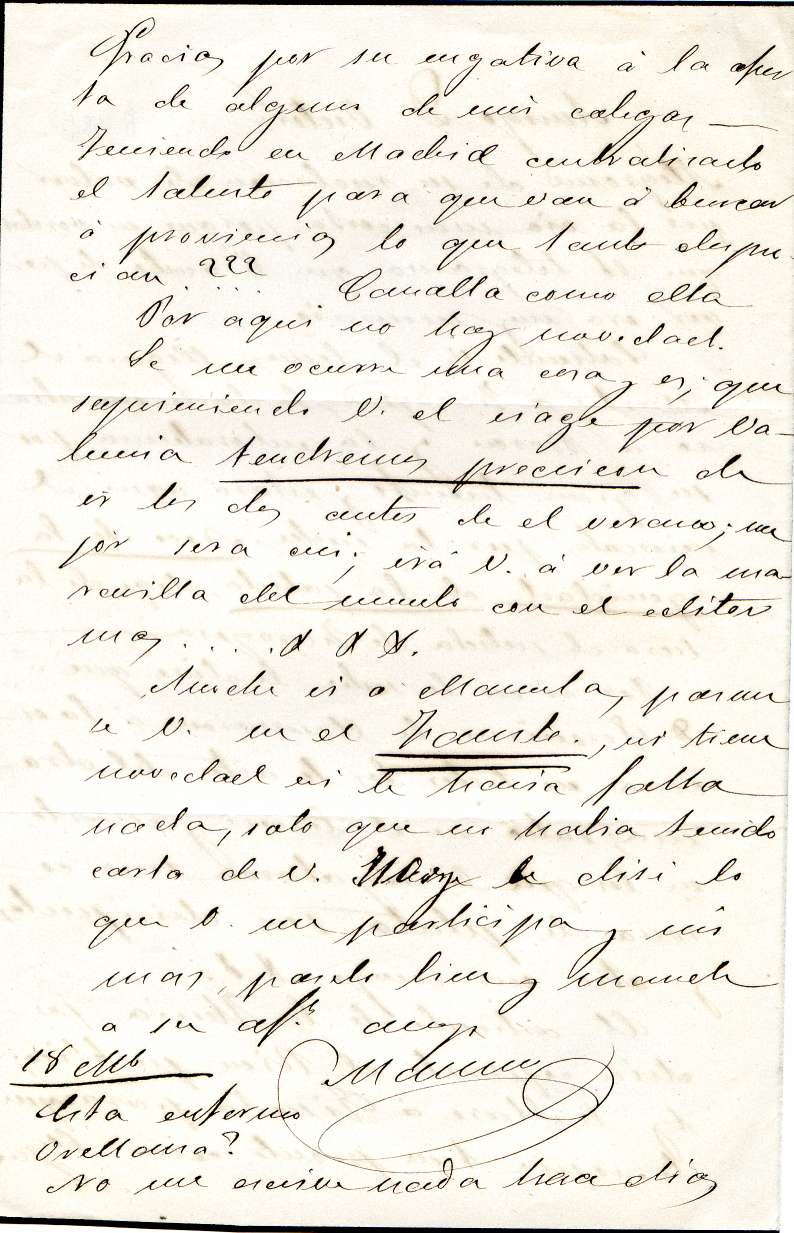 Gracias por su negativa á la ofer
ta de algunos de mis colegas —
Teniendo en Madrid centralizado
el talento para que van á buscar
á provincias lo que tanto despre-
cian ..???.. Canalla como ella
Por aqui no hay novedad.
Se me ocurre una cosa y es, que
siguiendo V. el viage por Va-
lencia tendremos precision de
ir los dos antes de el verano; me
jor sera asi; irá V. á ver la ma-
ravilla del mundo con el editor
mas .....
Anoche vi a Manuela, para
se V. en el Fausto., ni tiene
novedad ni le hacia falta
nada, solo que no habia tenido
carta de V. Hoy le dire lo
que V. me participa y sin
mas, paselo bien y mande
a su af.º amigo
18 Mb
Esta enfermo
Orellana?
No me escribe nada hace dias